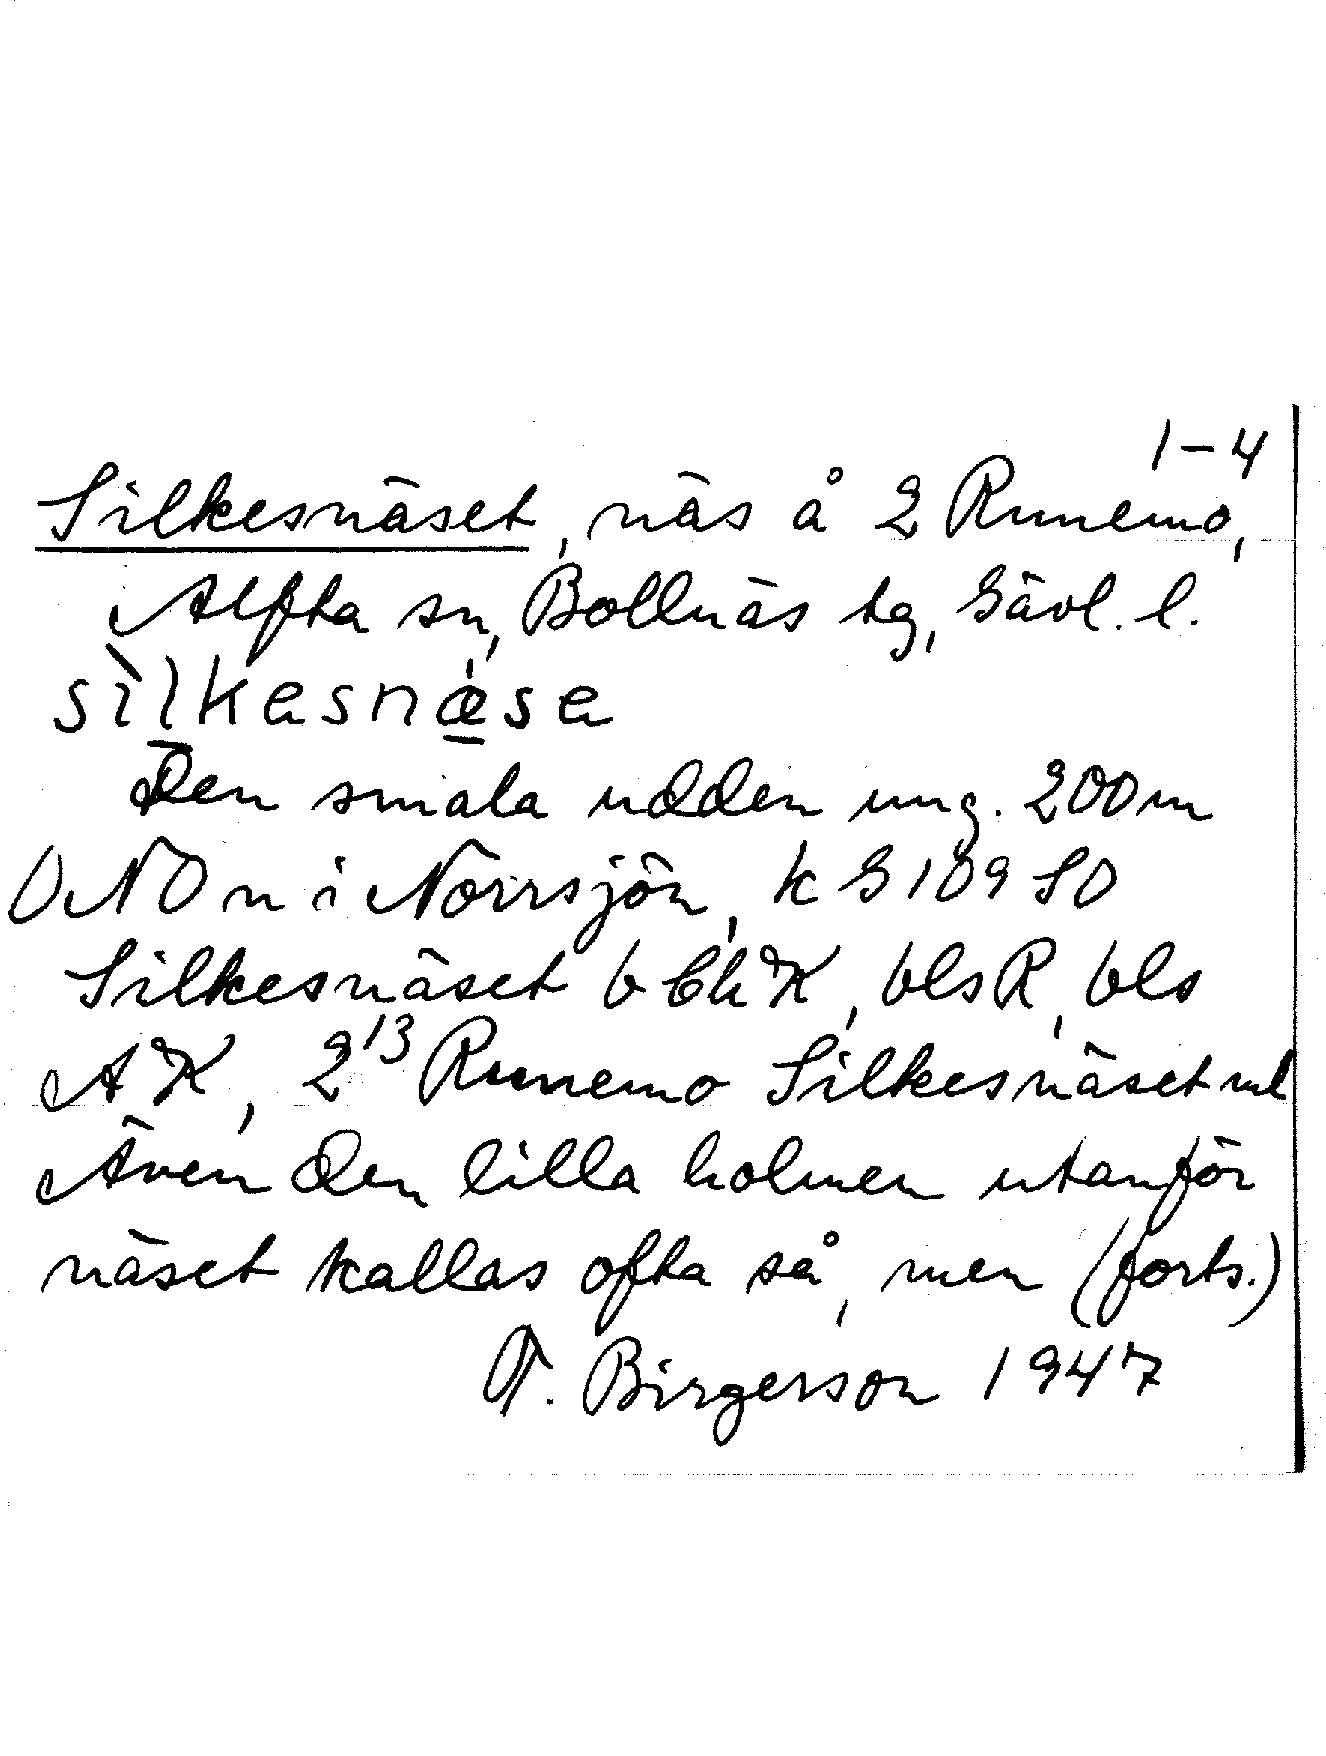 1–4
Silkesnäset, näs å 2 Runemo,
Alfta sn, Bollnäs tg, Gävl. l.
sìlkesnæse
Den smala udden ung. 200m
ONO n i Norrsjön, k G 109 SO
Silkesnäset b Ch K, bls R, bls
AK, 2¹³ Runemo Silkesnäset ml
Även den lilla holmen utanför
näset kallas ofta så, men (forts.)
T. Birgerson 1947